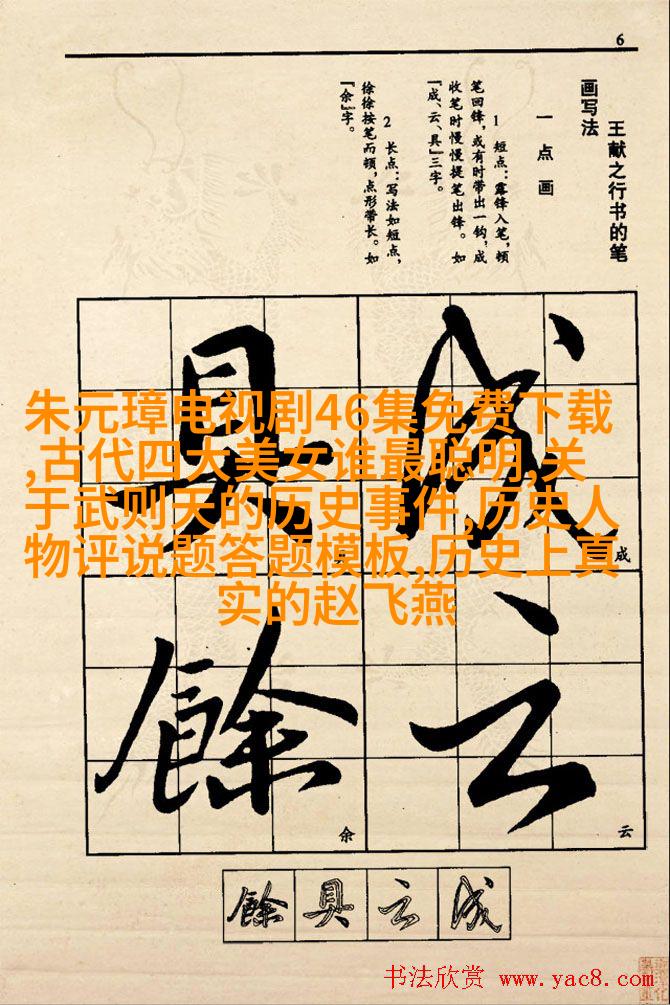 6
王献之行书的笔
画写法
一 点 画
1 短点：露锋入笔，顿
笔回锋，或有时带出一钩，成
收笔时慢慢提笔出锋。如
『成、云、具』三字。
2 长点：写法如短点，
徐徐按笔而顿，点形带长。如
『余』字。
朱元璋电视剧46集免费下载
,古代四大美女谁最聪明,关
于武则天的历史事件,历史人
物评说题答题模板,历史上真
实的赵飞燕
具 成
成
餘 云
余 云
餘 具 云 成
书法欣赏 www.yac8.com